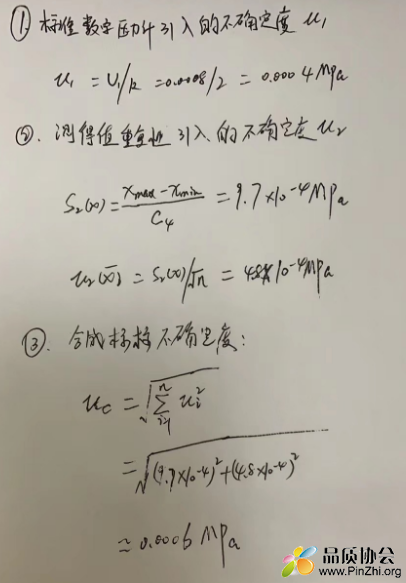 ① 标准数字压力计引入的不确定度 u₁
u₁ = U₁/k = 0.0008/2 = 0.0004 MPa
②. 测得值重复性引入的不确定度 u₂
S₂(x) = (xmax - xmin)/C₄ = 9.7×10⁻⁴ MPa
u₂(x̄) = S₂(x)/√n = 4.8×10⁻⁴ MPa
③. 合成标准不确定度:
uc = √(∑ⁿᵢ₌₁ uᵢ²)
= √((9.7×10⁻⁴)² + (4.8×10⁻⁴)²)
≈ 0.0006 MPa
品质协会
www.PinZhi.org